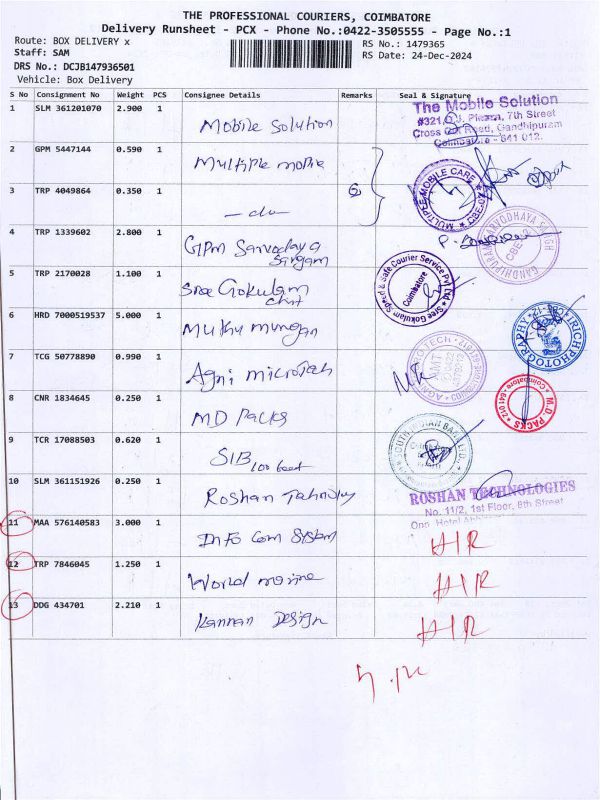 THE PROFESSIONAL COURIERS, COIMBATORE
Delivery Runsheet - PCX - Phone No.:0422-3505555 - Page No.:1
Route: BOX DELIVERY x
RS No.: 1479365
Staff: SAM
RS Date: 24-Dec-2024
DRS No.: DCJB147936501
Vehicle: Box Delivery
S No Consignment No Weight PCS Consignee Details Remarks Seal & Signature
1 SLM 361201070 2.900 1 Mobile Solution
The Mobile Solution
#321, Plaza, 7th Street
Cross Cut Road, Gandhipuram
Coimbatore - 641 012.
2 GPM 5447144 0.590 1 Multiple mobile
MULTIPLE MOBILE CARE
CBE-02
3 TRP 4049864 0.350 1 - do -
4 TRP 1339602 2.800 1 GPM Sarvodaya
Sangam
GANDHIPURAM SARVODHAYA SANGH
CBE-12
5 TRP 2170028 1.100 1 Sree Gokulam
Chit
Sree Gokulam Speed & Safe Courier Service Pvt Ltd
Coimbatore
6 HRD 7000519537 5.000 1 Muthu murugan
PHOTOGRAPHY
7 TCG 50778890 0.990 1 Agni microtab
8 CNR 1834645 0.250 1 MD Packs
M.D. PACKS
Coimbatore - 641 012
9 TCR 17088503 0.620 1 SIB 100 feet
SOUTH INDIAN BANK LTD.
10 SLM 361151926 0.250 1 Roshan
ROSHAN TECHNOLOGIES
No. 11/2, 1st Floor, 8th Street
Opp. Hotel
11 MAA 576140583 3.000 1 Info Com System H/R
12 TRP 7846045 1.250 1 World marine H/R
13 DDG 434701 2.210 1 Kannan Design H/R